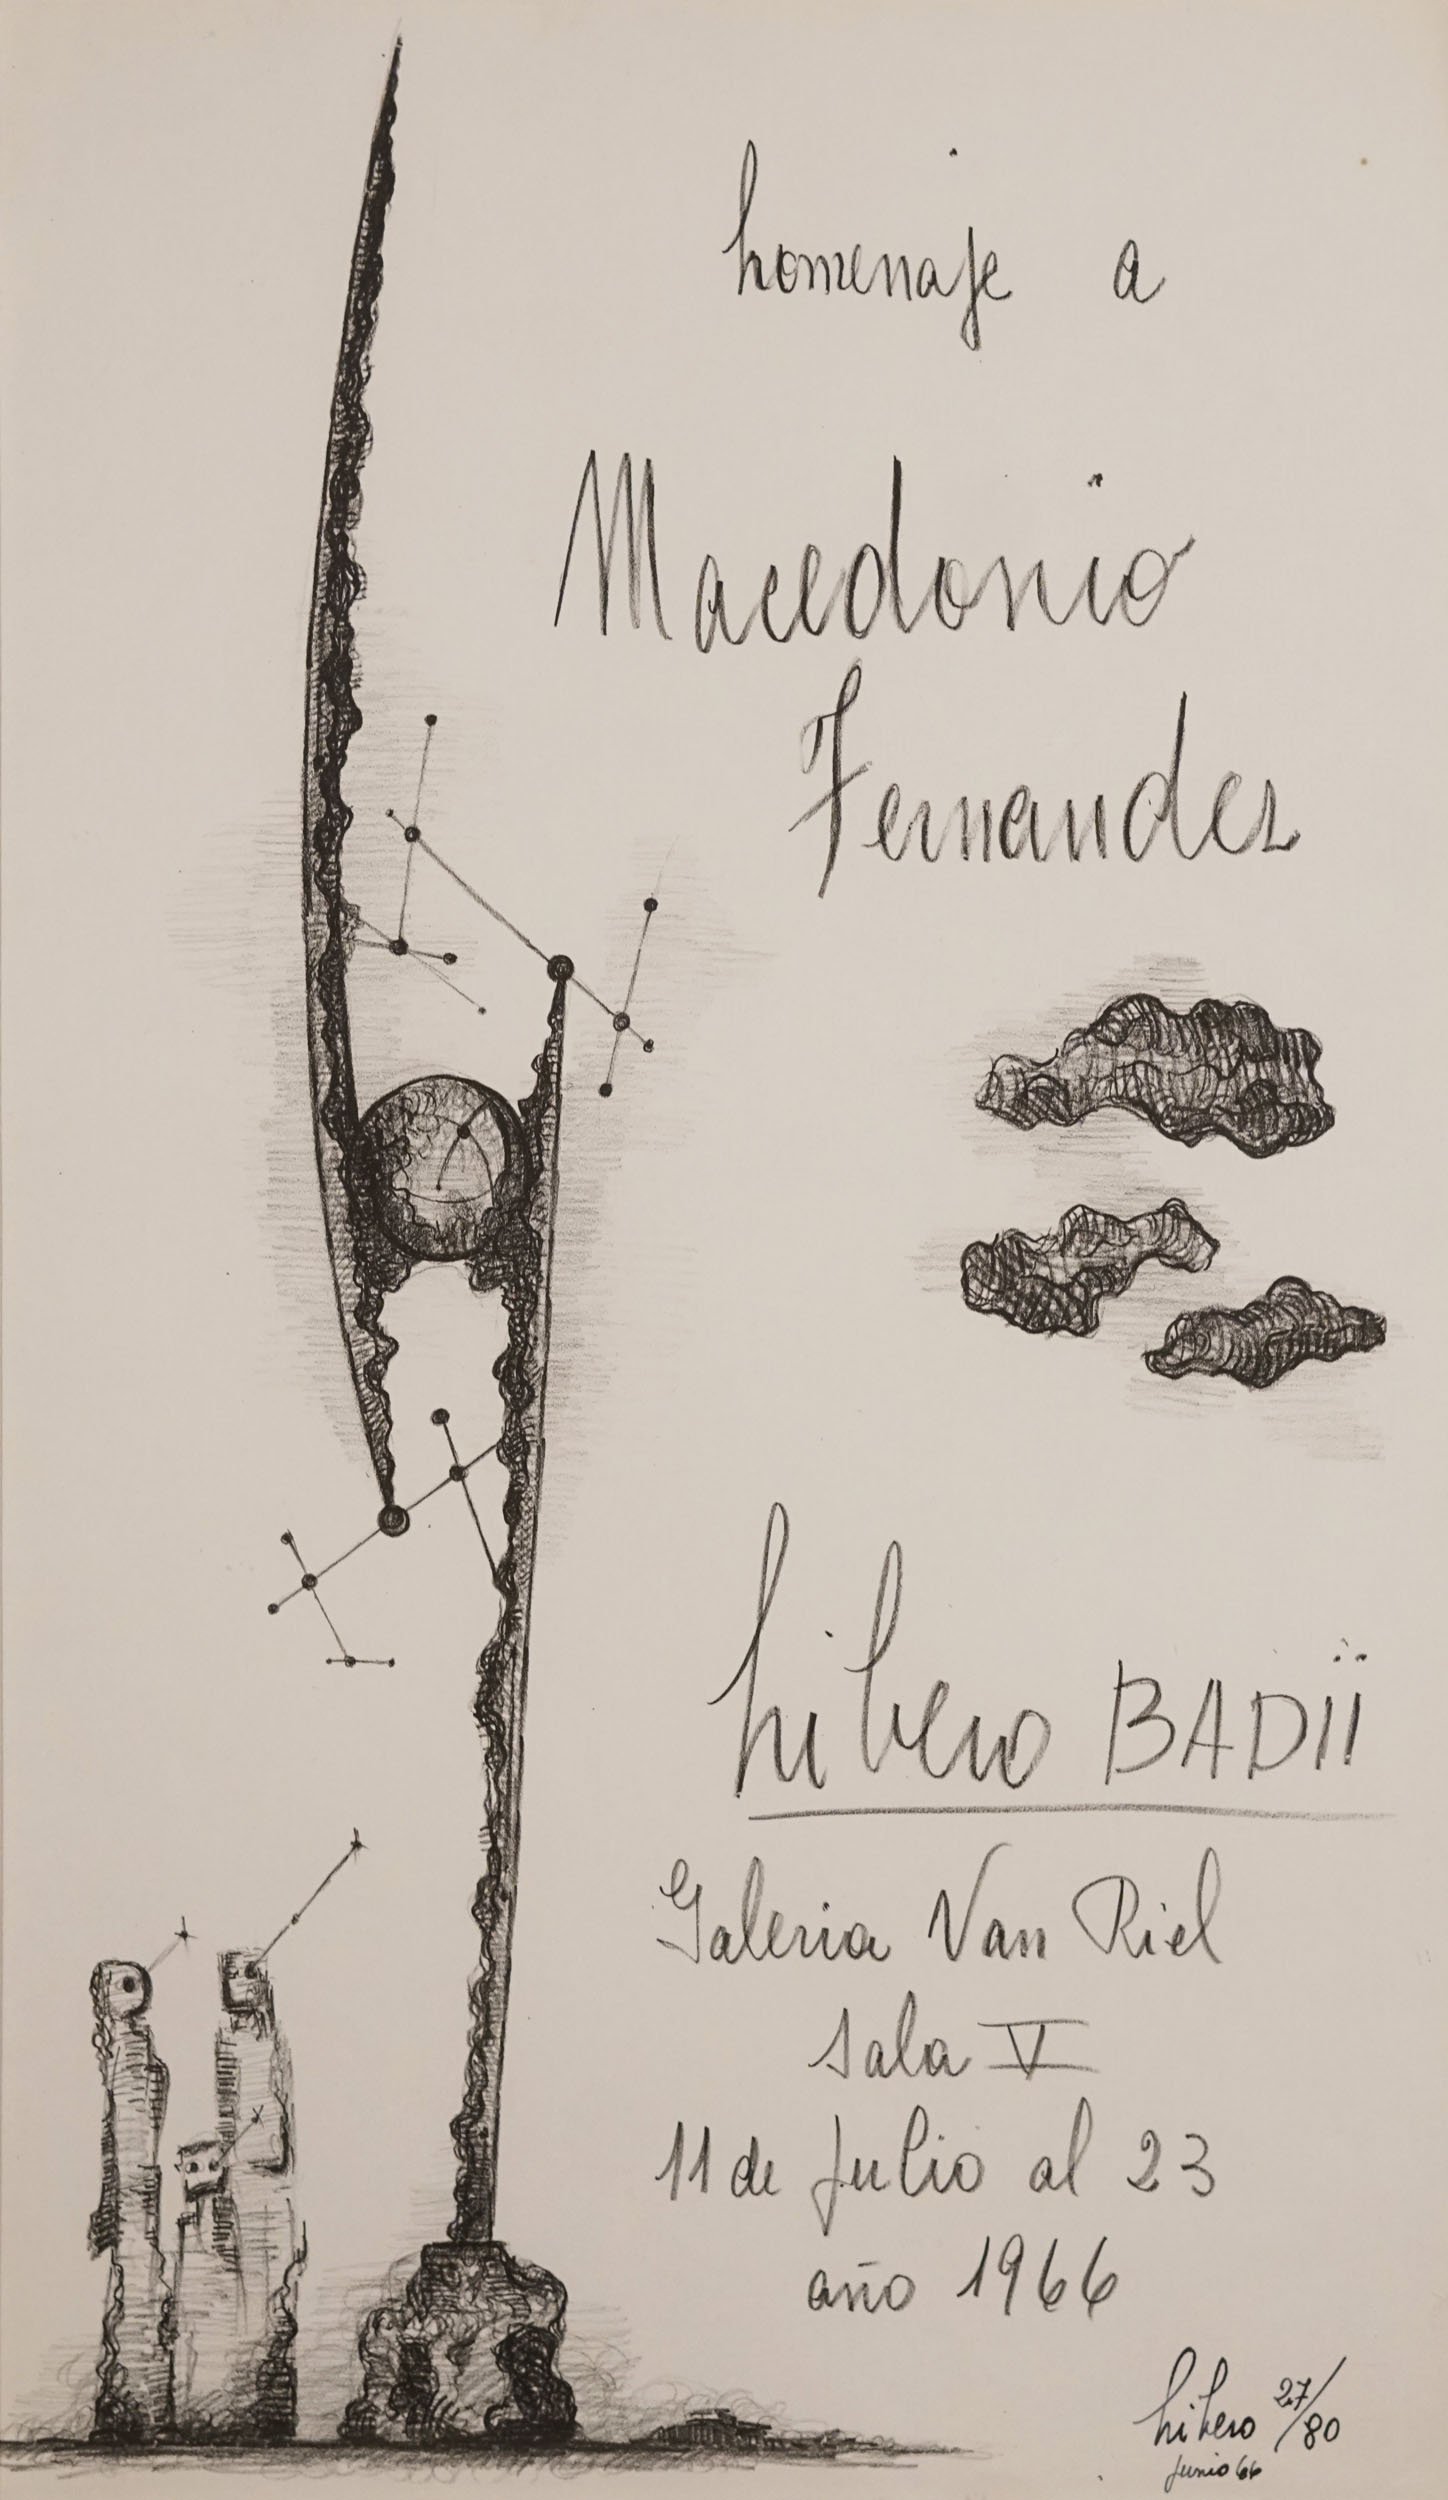 homenaje a
Macedonio
Fernandez
Libero BADII
Galeria Van Riel
Sala V
11 de Julio al 23
año 1966
Libero 27/80
Junio 66